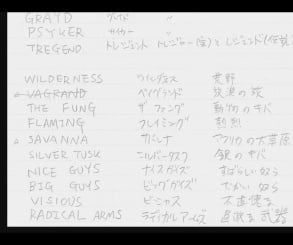 GRAYD グレイド 〃
PSYKER サイカー 〃
TREGEND トレジェンド トレジャー(宝)とレジェンド(伝説)
WILDERNESS ウィルダネス 荒野
VAGRAND ベイグランド 放浪の旅
THE FUNG ザ ファング 動物のキバ
FLAMING フレイミング 熱烈
SAVANNA サバンナ アフリカの大草原
SILVER TUSK シルバータスク 銀のキバ
NICE GUYS ナイスガイズ すばらしい奴ら
BIG GUYS ビッグガイズ でかい奴ら
VISIOUS ビシャス 不道徳な
RADICAL ARMS ラディカルアームズ 過激な武器